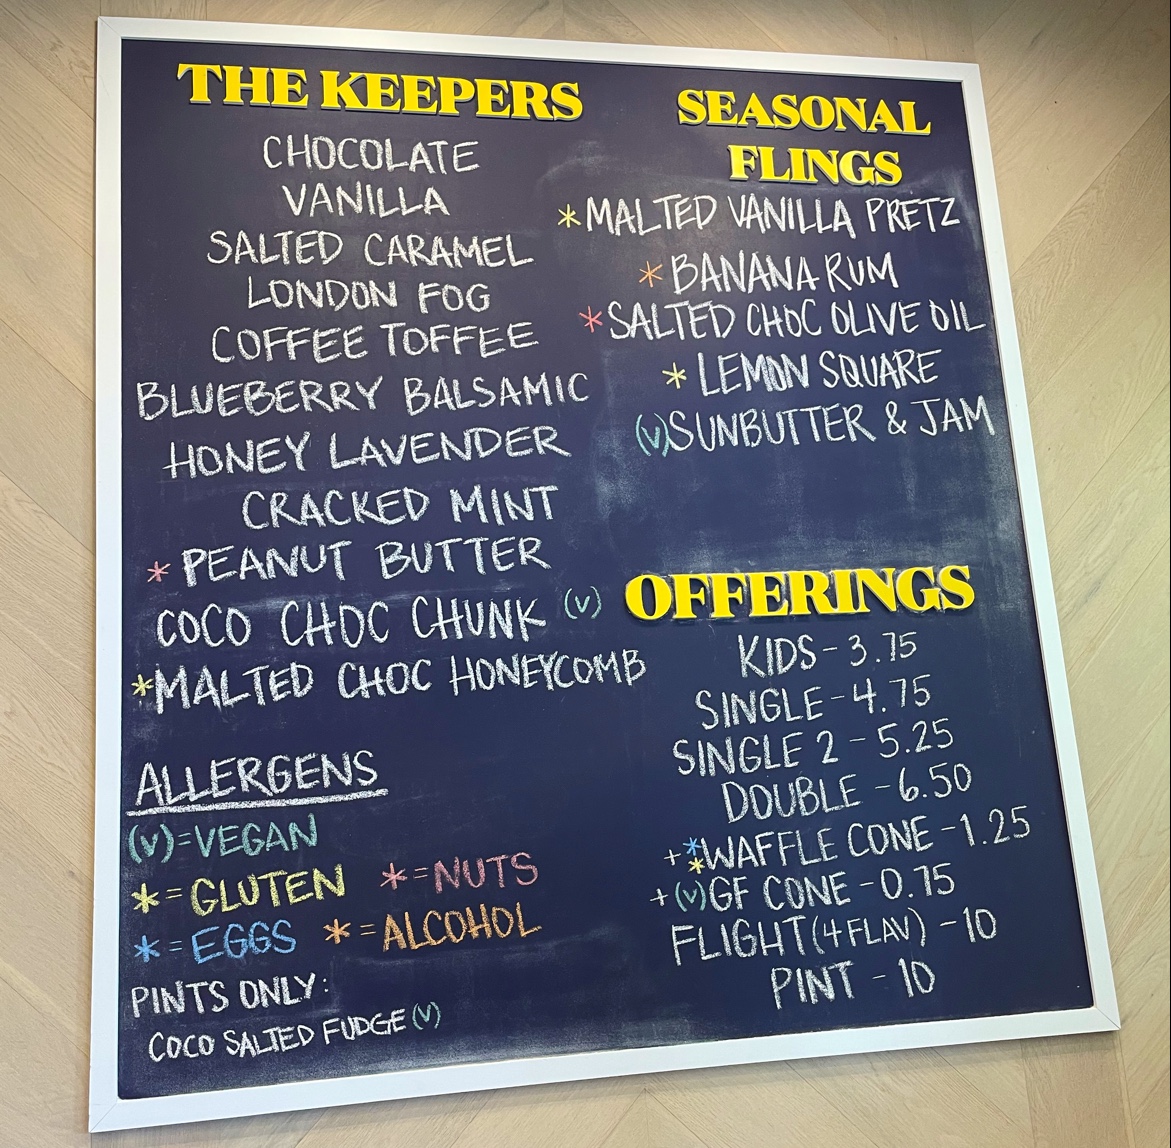 THE KEEPERS
CHOCOLATE
VANILLA
SALTED CARAMEL
LONDON FOG
COFFEE TOFFEE
BLUEBERRY BALSAMIC
HONEY LAVENDER
CRACKED MINT
* PEANUT BUTTER
COCO CHOC CHUNK (V)
*MALTED CHOC HONEYCOMB
ALLERGENS
(V)=VEGAN
*=GLUTEN *=NUTS
*=EGGS *=ALCOHOL
PINTS ONLY:
COCO SALTED FUDGE (V)
SEASONAL
FLINGS
*MALTED VANILLA PRETZ
*BANANA RUM
*SALTED CHOC OLIVE OIL
* LEMON SQUARE
(V)SUNBUTTER & JAM
OFFERINGS
KIDS - 3.75
SINGLE - 4.75
SINGLE 2 - 5.25
DOUBLE - 6.50
+**WAFFLE CONE - 1.25
+(V)GF CONE - 0.75
FLIGHT (4 FLAV) - 10
PINT - 10